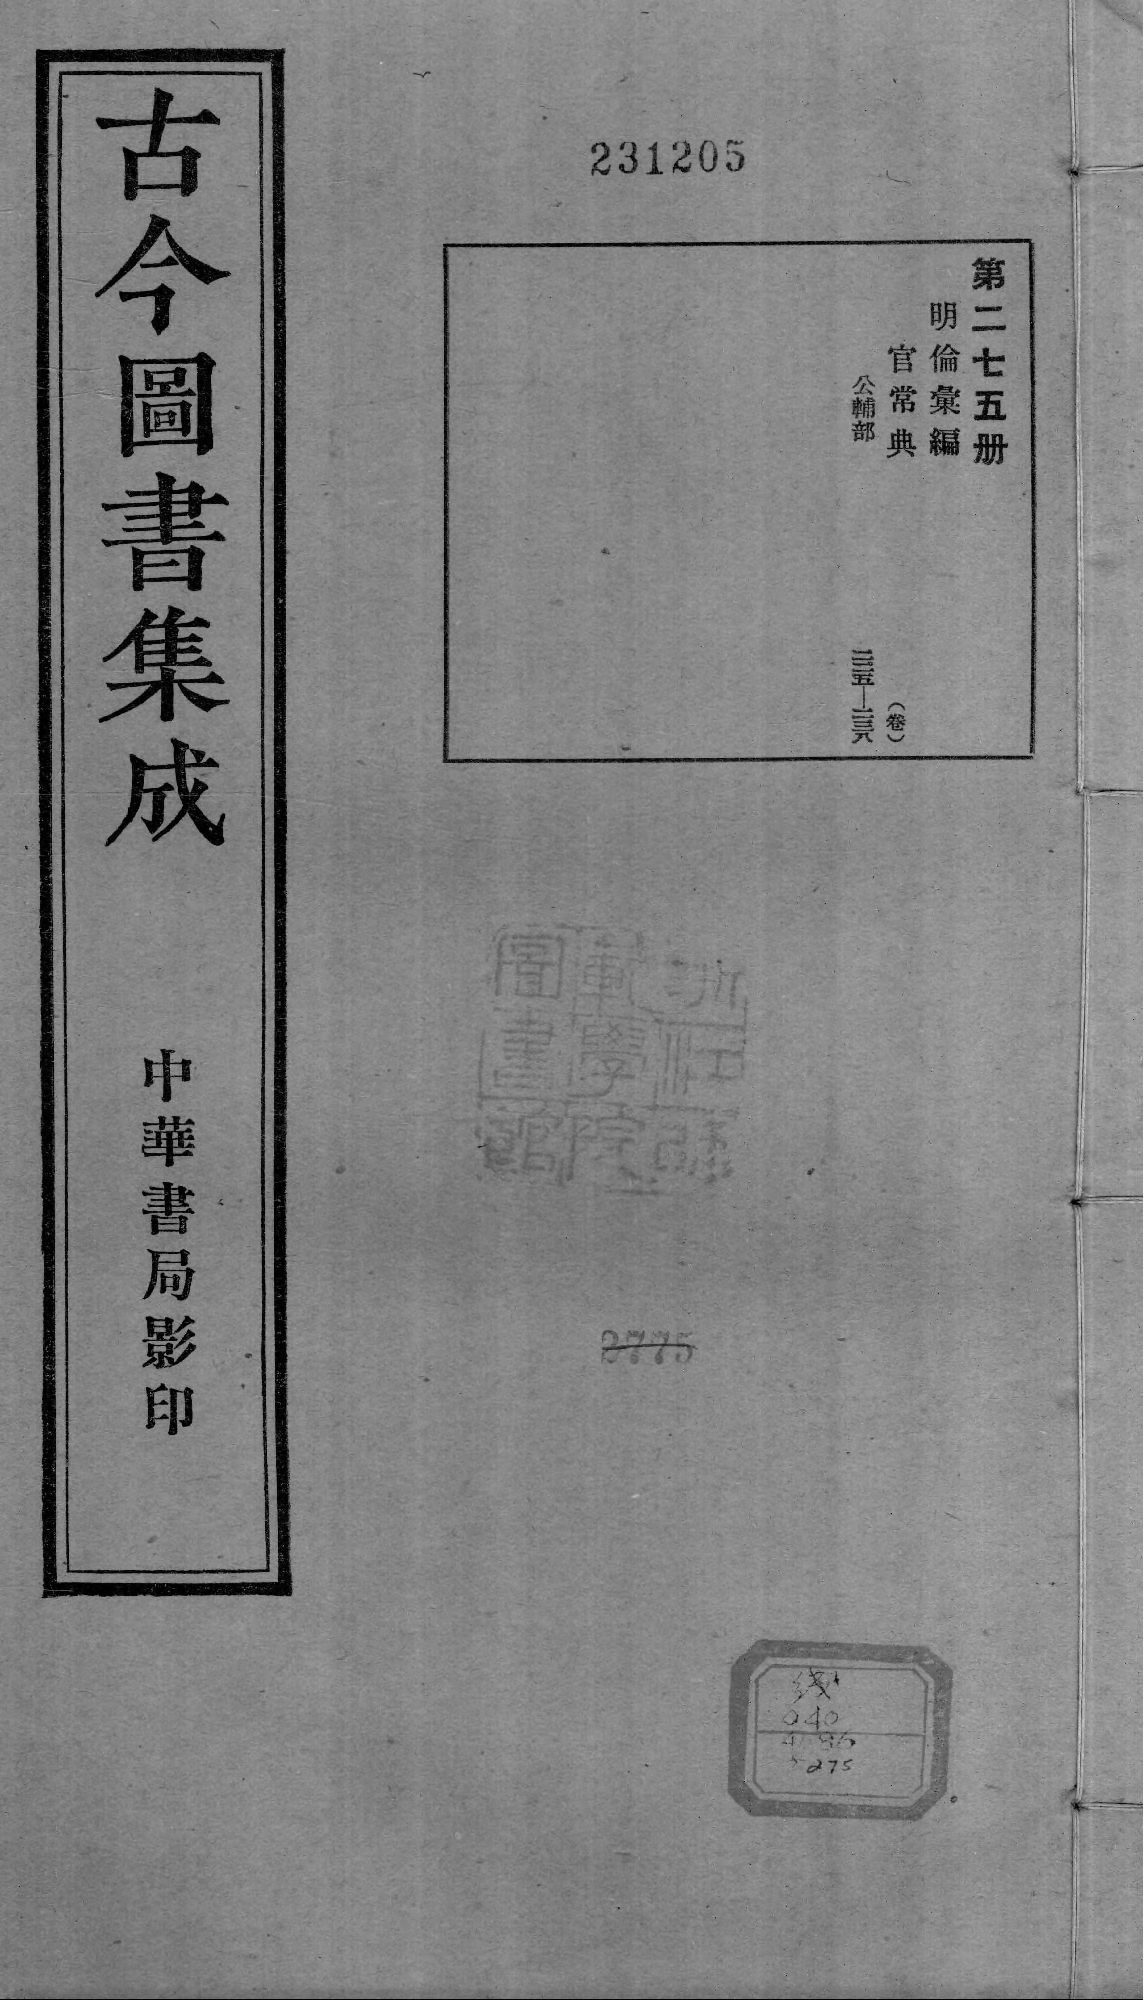 231205
第二七五册
明倫彙編
官常典
（卷）
公輔部
二二五—二三八
古今圖書集成
中華書局影印
圖書館
學院
2775
线
040
275